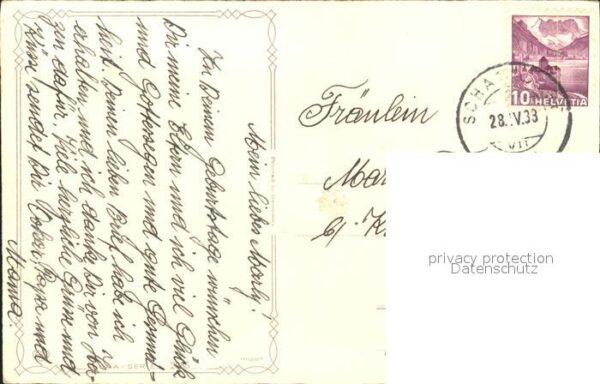 Mein liebes Marly!
Zu Deinem Geburtstag wünschen
Dir meine Eltern und ich viel Glück
und Gottessegen und gute Gesund-
heit. Deinen lieben Brief habe ich
erhalten und ich danke Dir von Her-
zen dafür. Viele herzliche Grüsse und
Küsse sendet Dir Oskar, Papa und
Mama.
Fräulein
Mar
b/ K
10 HELVETIA
28.IV.38
VII
privacy protection
Datenschutz